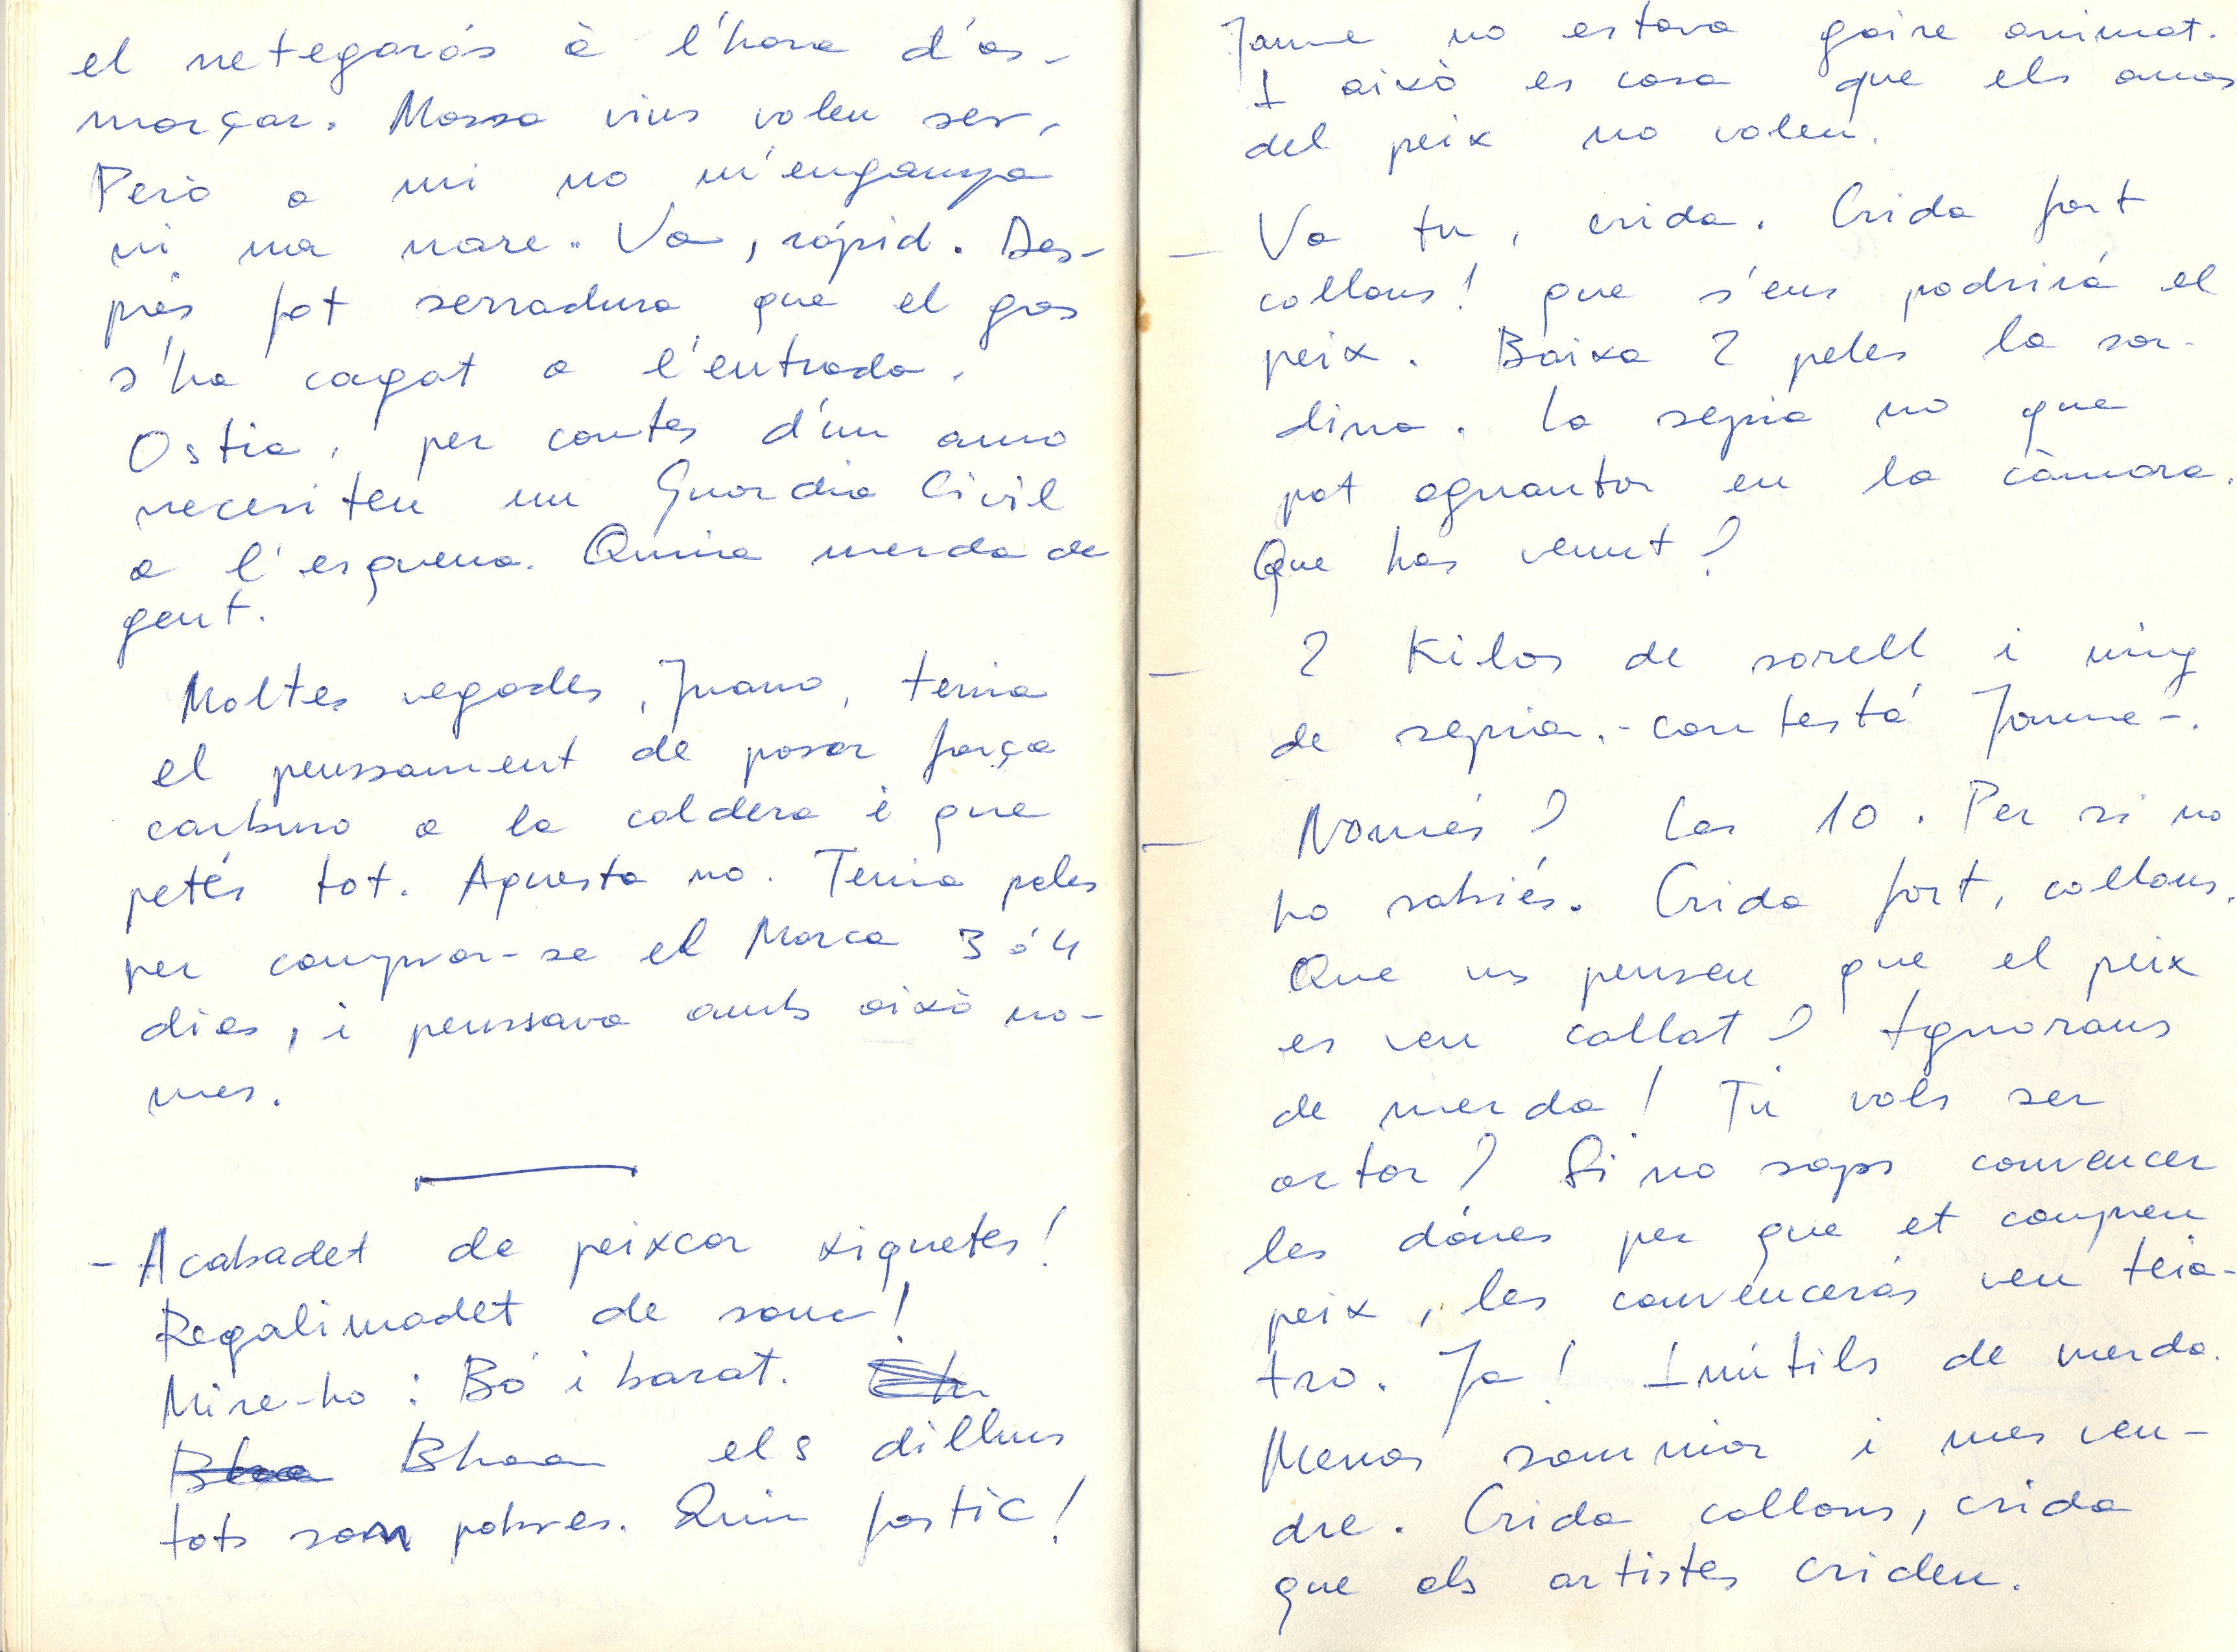 el netegarás à l'hora d'es-
morçar. Massa vius voleu ser,
Però a mi no m'enganya
ni ma mare. Va, ràpid. Des-
près fot serradura que el gos
s'ha cagat a l'entrada.
Ostia, per contes d'un amo
necesiteu un Guardia Civil
a l'esquena. Quina merda de
gent.
Moltes vegades, Juano, tenia
el penssament de posar força
carburo a la caldera i que
petés tot. Aquesta no. Tenia peles
per comprar-se el Marca 3 ó 4
dies, i penssava amb aixó no-
mes.
- Acabadet de peixcar xiquetes!
Regalimadet de sanc!
Mire-ho: Bó i barat.
Bhaa els dilluns
tots son pobres. Quin fastic!
Jaume no estava gaire animat.
I aixó es cosa que els amos
del peix no volen.
- Va tu, crida. Crida fort
collons! que s'ens podrirá el
peix. Baixa 2 peles la sar-
dina. La sepia no que
pot aguantar en la càmara.
Que has venut?
- 2 Kilos de sorell i mig
de sepia, -contestá Jaume-.
- Només? Les 10. Per si no
ho sabiés. Crida fort, collons.
Que us penseu que el peix
es ven callat? Ignorans
de merda! Tú vols ser
actor? Si no saps convencer
les dónes per que et compren
peix, les convencerás ven teia-
tro. Ja! Inútils de merda.
Menos somniar i mes ven-
dre. Crida collons, crida
que els artistes criden.